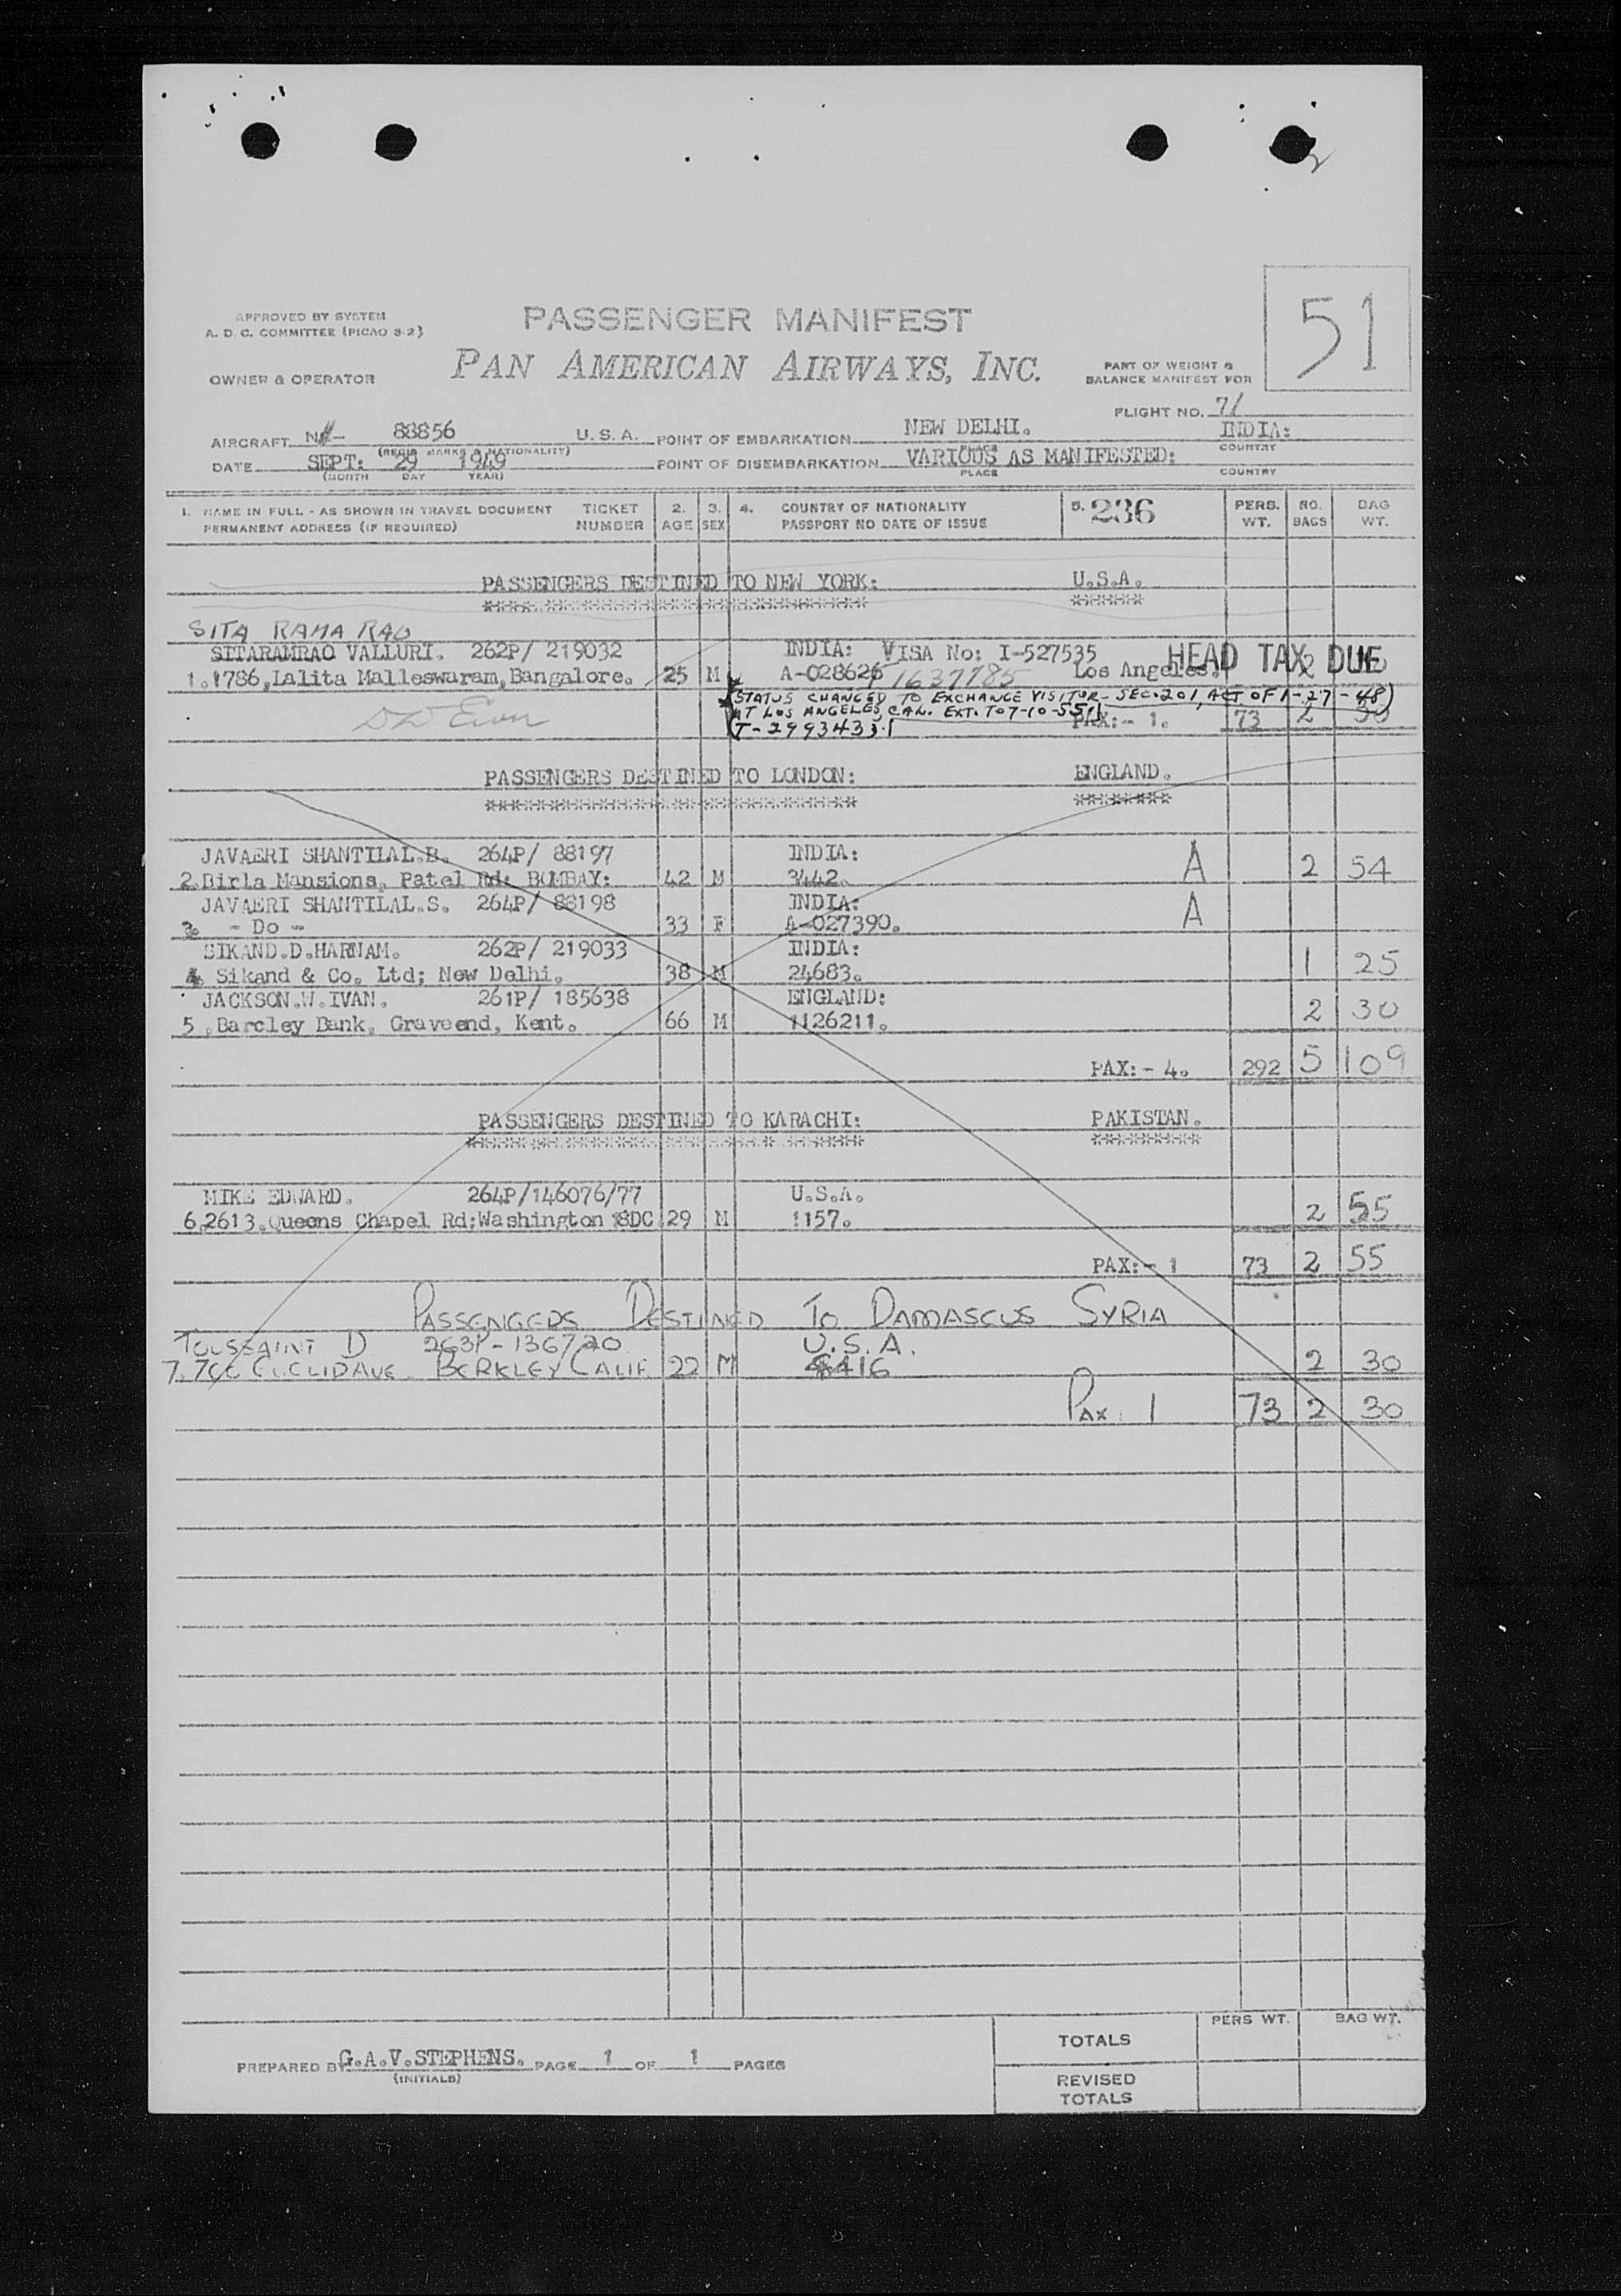 51
APPROVED BY SYSTEM
A. D. C. COMMITTEE (PICAO 8-2)
PASSENGER MANIFEST
OWNER & OPERATOR
PAN AMERICAN AIRWAYS, INC.
PART OF WEIGHT &
BALANCE MANIFEST FOR
FLIGHT NO. 71
AIRCRAFT 88856 U. S. A. POINT OF EMBARKATION NEW DELHI. INDIA:
(REGIS. MARKS & NATIONALITY) PLACE COUNTRY
DATE SEPT: 29 1949 POINT OF DISEMBARKATION VARIOUS AS MANIFESTED:
(MONTH DAY YEAR) PLACE COUNTRY
1. NAME IN FULL - AS SHOWN IN TRAVEL DOCUMENT TICKET 2. 3. 4. COUNTRY OF NATIONALITY 5. 236 PERS. NO. BAG
PERMANENT ADDRESS (IF REQUIRED) NUMBER AGE SEX PASSPORT NO DATE OF ISSUE WT. BAGS WT.
PASSENGERS DESTINED TO NEW YORK: U.S.A.
SITA RAMA RAO
SITARAMRAO VALLURI. 262P/ 219032 INDIA: VISA No: I-527535 HEAD TAX DUE
1.1786,Lalita Malleswaram,Bangalore. 25 M A-028626 1637785 Los Angeles. 2
(STATUS CHANGED TO EXCHANGE VISITOR - SEC. 201, ACT OF 1-27-48)
AT LOS ANGELES, CAL. EXT. TO 7-10-55 PAX:- 1. 73 2 30
T-2993433
PASSENGERS DESTINED TO LONDON: ENGLAND.
JAVAERI SHANTILAL.B. 264P/ 88197 INDIA: A
2.Birla Mansions, Patel Rd: BOMBAY: 42 M 3442. 2 54
JAVAERI SHANTILAL.S. 264P/ 88198 INDIA: A
3. - Do - 33 F A-027390.
SIKAND.D.HARNAM. 262P/ 219033 INDIA:
4. Sikand & Co. Ltd; New Delhi. 38 M 24683. 1 25
JACKSON.W.IVAN. 261P/ 185638 ENGLAND:
5.Barcley Bank, Graveend, Kent. 66 M 1126211. 2 30
PAX:- 4. 292 5 109
PASSENGERS DESTINED TO KARACHI: PAKISTAN.
MIKE EDWARD. 264P/146076/77 U.S.A.
6.2613.Queens Chapel Rd;Washington 18DC 29 M 1157. 2 55
PAX:- 1 73 2 55
PASSENGERS DESTINED TO DAMASCUS SYRIA
TOUSSAINT D 263P-136720 U.S.A.
7. EUCLID AVE. BERKLEY CALIF. 22 M 416 2 30
PAX: 1 73 2 30
PREPARED BY G.A.V.STEPHENS. PAGE 1 OF 1 PAGES
(INITIALS)
PERS WT. BAG WT.
TOTALS
REVISED
TOTALS